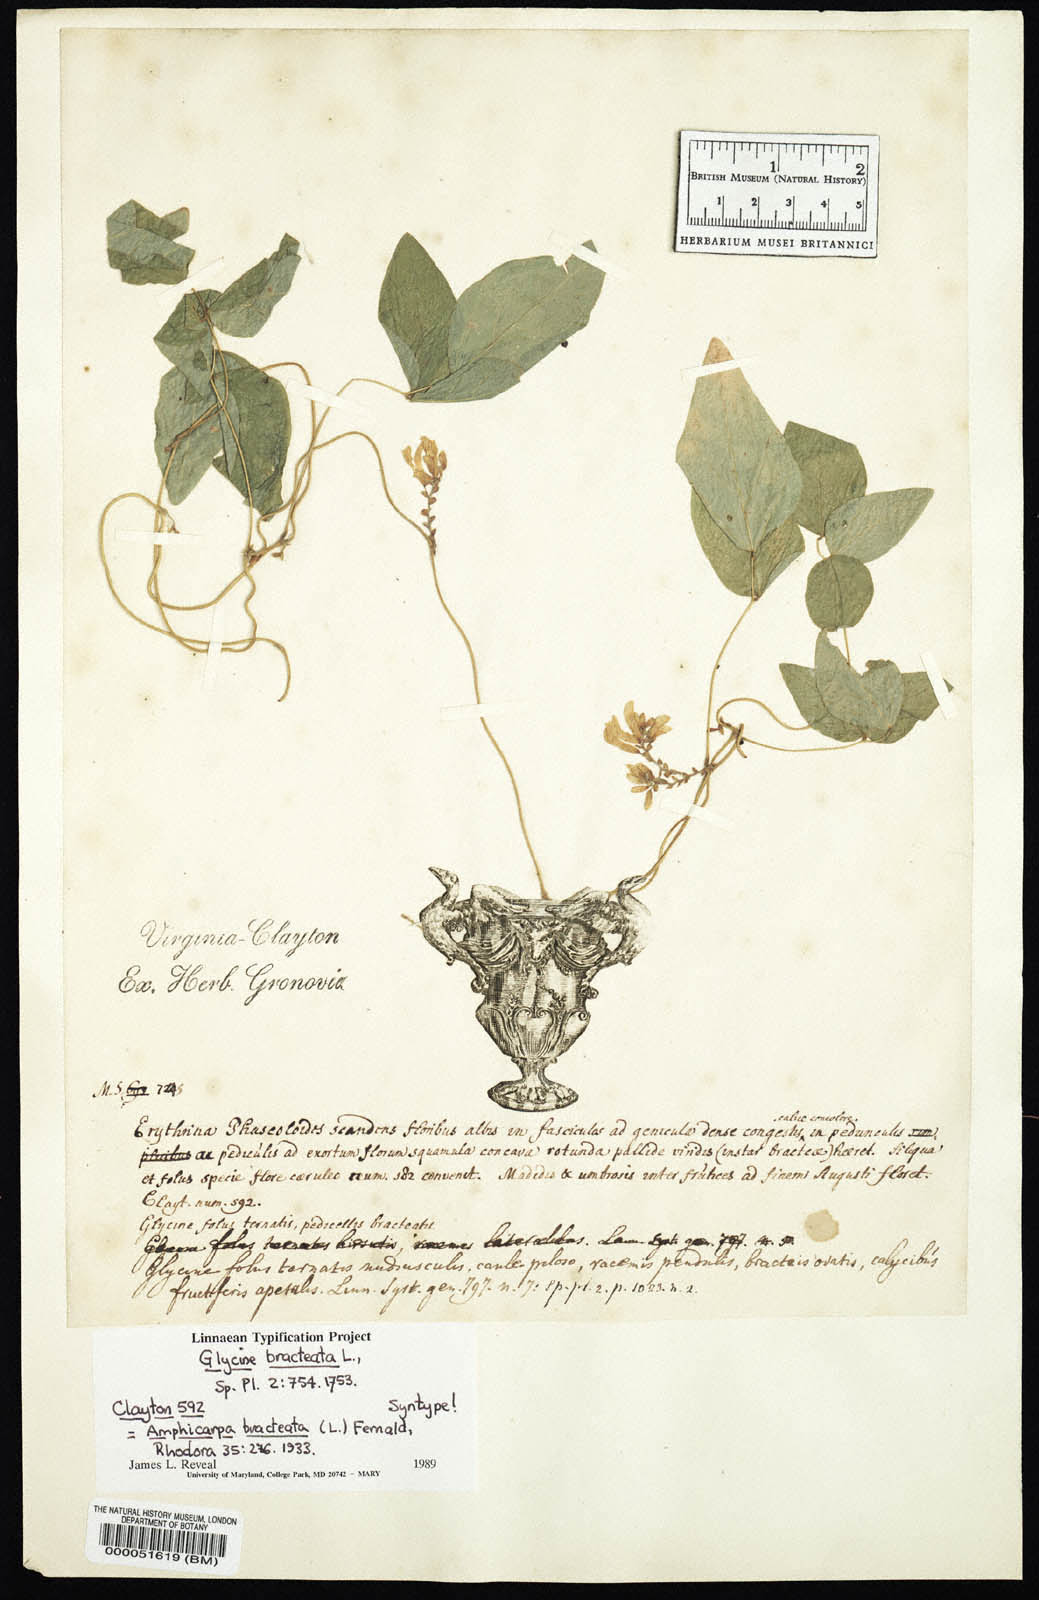 1 2
BRITISH MUSEUM (NATURAL HISTORY)
1 2 3 4 5
HERBARIUM MUSEI BRITANNICI
Virginia-Clayton
Ex. Herb. Gronovii
M.S.
calice concolore
Erythrina Phaseoloides scandens floribus albis in fasciculis ad genicula dense congestis, in pedunculis
pluribus pediculis ad exortum florum squamula concava rotunda pallide viridis (instar bracteae) haeret. Siliqua
et foliis specie flore caeruleo num. 582 convenit. Madidis & umbrosis inter frutices ad finem Augusti floret.
Clayt. num. 592.
Glycine foliis ternatis, pedicellis bracteatis
Glycine foliis ternatis hirsutis, racemis lateralibus. Linn. Syst. gen. 797. n. 5.
Glycine foliis ternatis nudiusculis, caule piloso, racemis pendulis, bracteis ovatis, calycibus
fructiferis apetalis. Linn. Syst. gen. 797. n. 7: Sp. pl. 2. p. 1023. n. 2.
Linnaean Typification Project
Glycine bracteata L.,
Sp. Pl. 2:754. 1753.
Clayton 592 Syntype!
= Amphicarpa bracteata (L.) Fernald,
Rhodora 35:276. 1933.
James L. Reveal 1989
University of Maryland, College Park, MD 20742 – MARY
THE NATURAL HISTORY MUSEUM, LONDON
DEPARTMENT OF BOTANY
000051619 (BM)